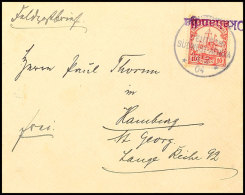 Feldpostbrief
Okahandja
10
04
Herrn Paul Thorun
in
frei.
Hamburg
St. Georg
Lange Reihe 92